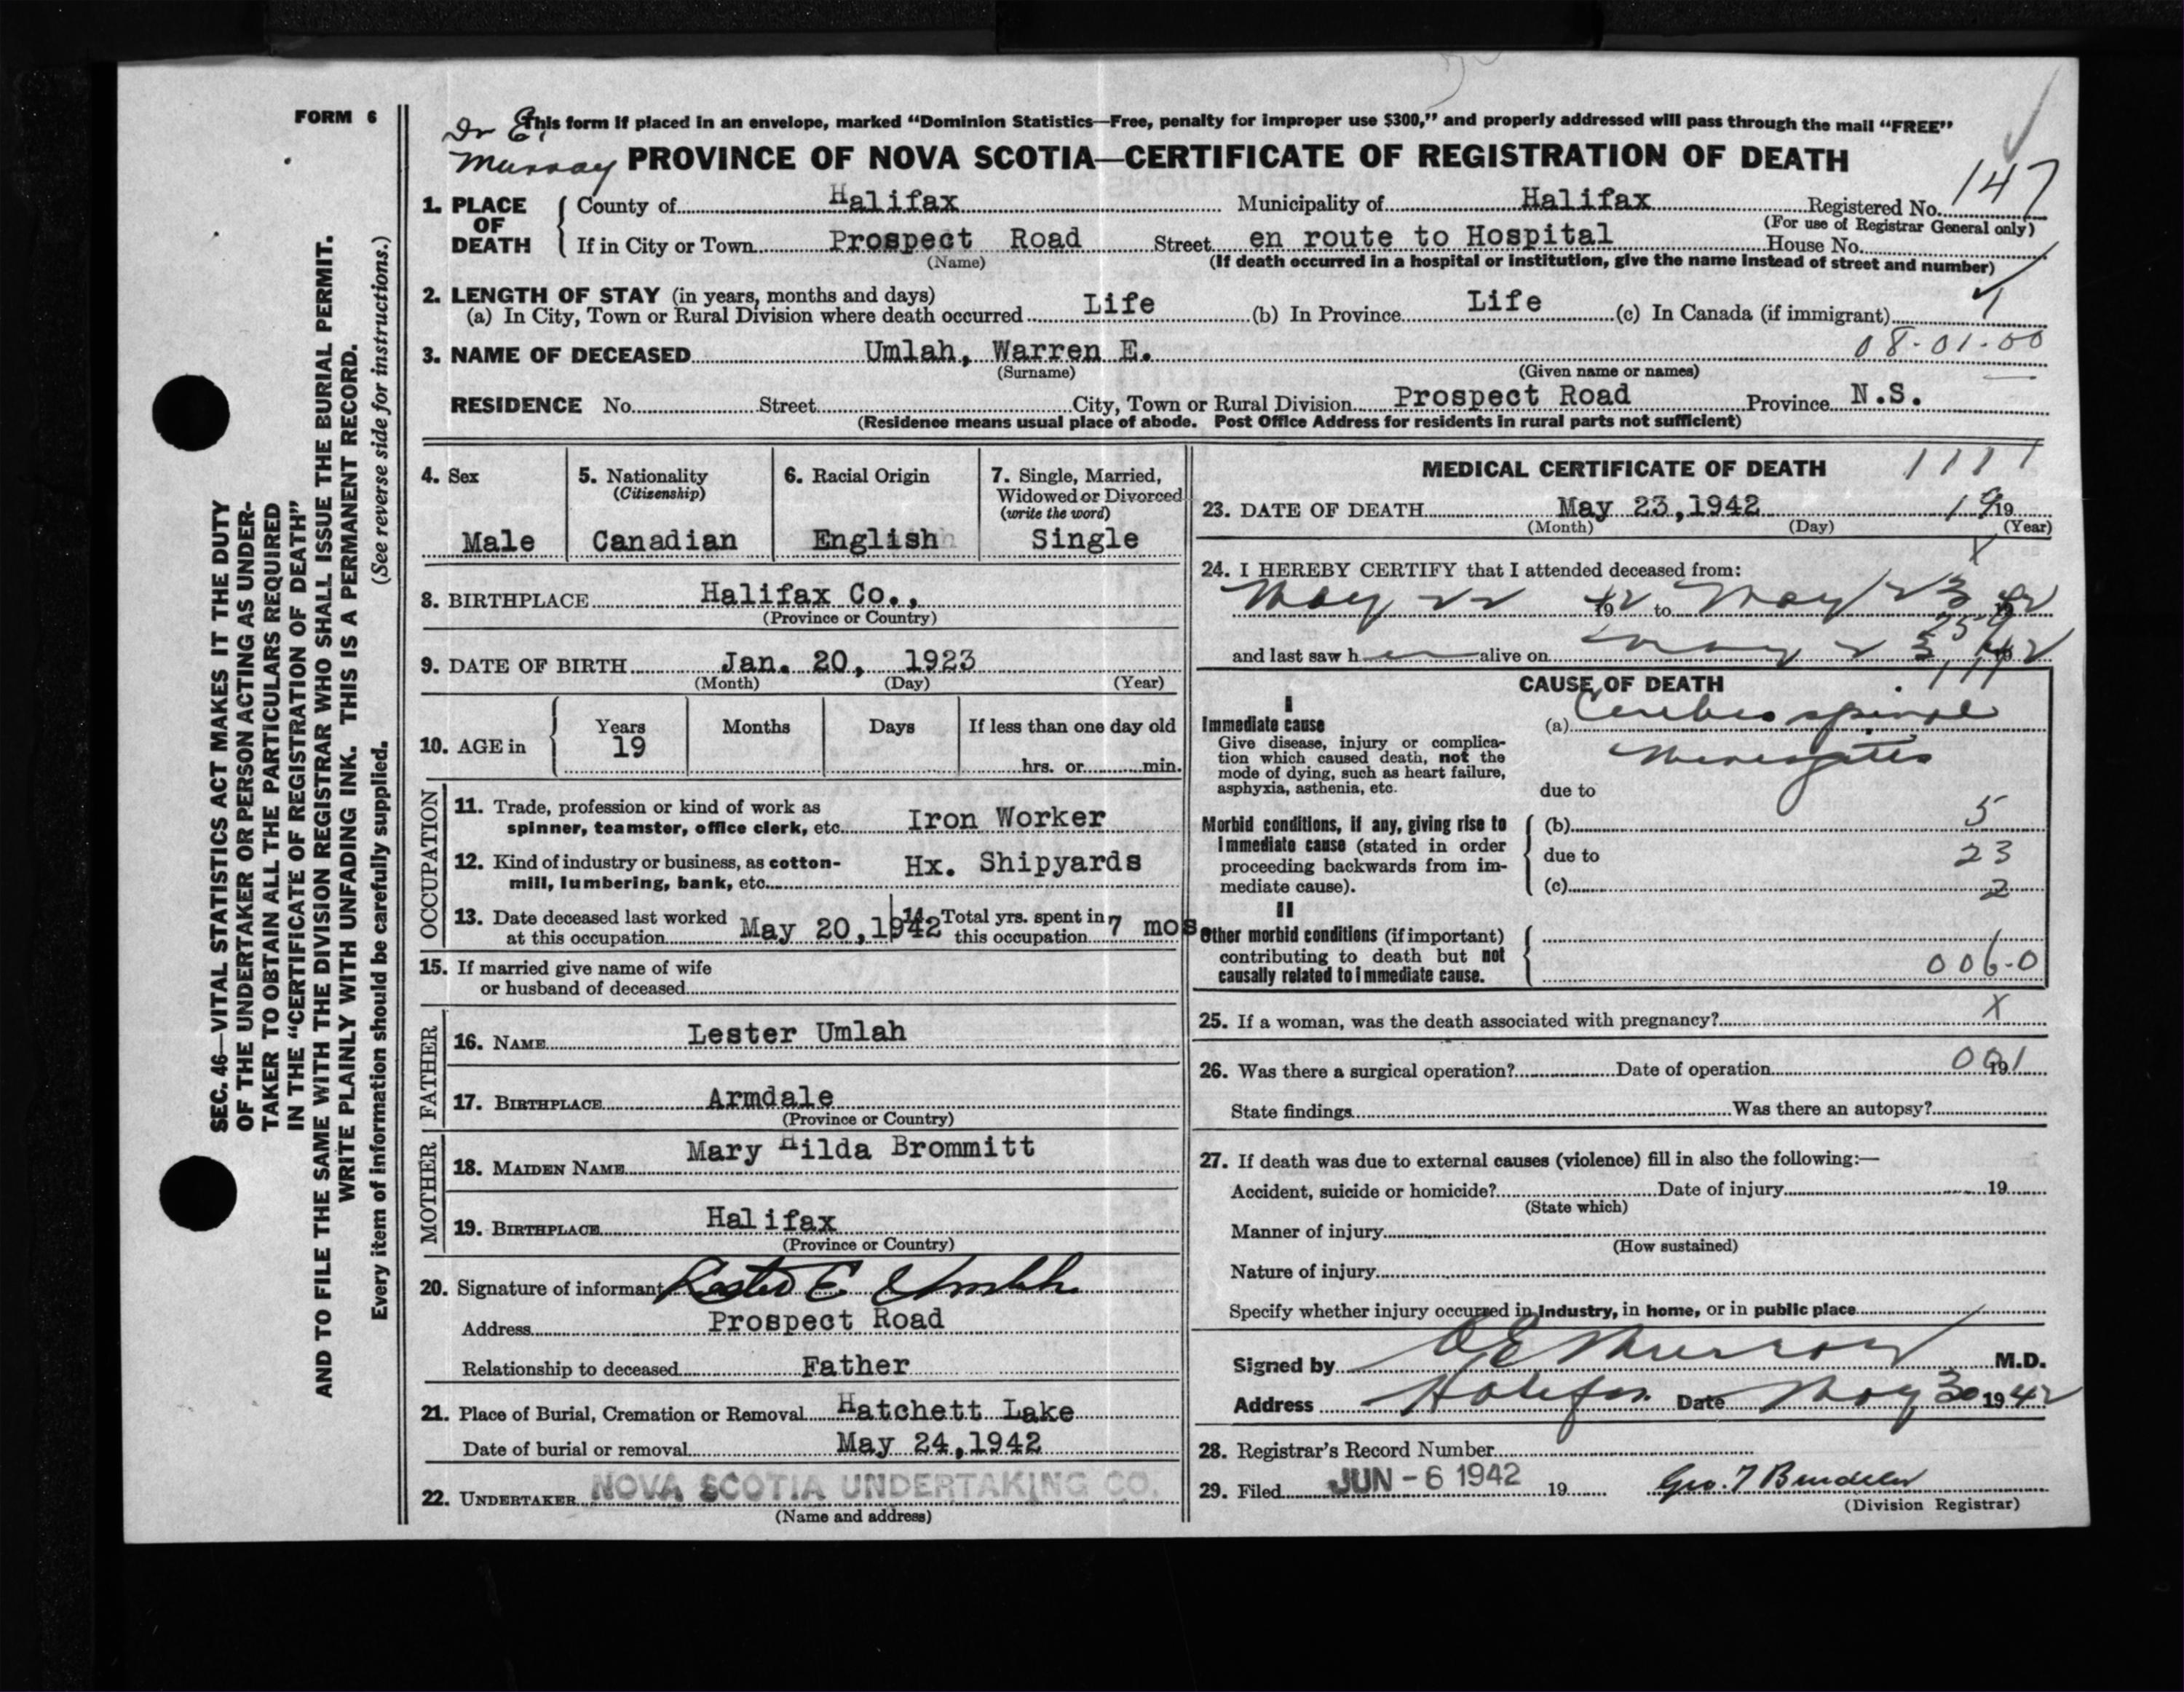 FORM 6
SEC. 46—VITAL STATISTICS ACT MAKES IT THE DUTY
OF THE UNDERTAKER OR PERSON ACTING AS UNDER-
TAKER TO OBTAIN ALL THE PARTICULARS REQUIRED
IN THE "CERTIFICATE OF REGISTRATION OF DEATH"
AND TO FILE THE SAME WITH THE DIVISION REGISTRAR WHO SHALL ISSUE THE BURIAL PERMIT.
WRITE PLAINLY WITH UNFADING INK. THIS IS A PERMANENT RECORD.
Every item of information should be carefully supplied. (See reverse side for instructions.)
Dr E.
Murray
This form if placed in an envelope, marked "Dominion Statistics—Free, penalty for improper use $300," and properly addressed will pass through the mail "FREE"
PROVINCE OF NOVA SCOTIA—CERTIFICATE OF REGISTRATION OF DEATH
1. PLACE OF DEATH County of Halifax Municipality of Halifax Registered No. 147
(For use of Registrar General only)
If in City or Town Prospect Road Street en route to Hospital House No.
(Name) (If death occurred in a hospital or institution, give the name instead of street and number)
2. LENGTH OF STAY (in years, months and days)
(a) In City, Town or Rural Division where death occurred Life (b) In Province Life (c) In Canada (if immigrant) 1
3. NAME OF DECEASED Umlah, Warren E. 08-01-00
(Surname) (Given name or names)
RESIDENCE No. Street City, Town or Rural Division Prospect Road Province N.S.
(Residence means usual place of abode. Post Office Address for residents in rural parts not sufficient)
4. Sex
Male
5. Nationality
(Citizenship)
Canadian
6. Racial Origin
English
7. Single, Married,
Widowed or Divorced
(write the word)
Single
8. BIRTHPLACE Halifax Co.,
(Province or Country)
9. DATE OF BIRTH Jan. 20, 1923
(Month) (Day) (Year)
10. AGE in Years Months Days If less than one day old
19
hrs. or min.
OCCUPATION
11. Trade, profession or kind of work as
spinner, teamster, office clerk, etc. Iron Worker
12. Kind of industry or business, as cotton-
mill, lumbering, bank, etc. Hx. Shipyards
13. Date deceased last worked
at this occupation May 20,1942
14. Total yrs. spent in
this occupation 7 mos.
15. If married give name of wife
or husband of deceased
FATHER
16. NAME Lester Umlah
17. BIRTHPLACE Armdale
(Province or Country)
MOTHER
18. MAIDEN NAME Mary Hilda Brommitt
19. BIRTHPLACE Halifax
(Province or Country)
20. Signature of informant Lester E Umlah
Address Prospect Road
Relationship to deceased Father
21. Place of Burial, Cremation or Removal Hatchett Lake
Date of burial or removal May 24,1942
22. UNDERTAKER NOVA SCOTIA UNDERTAKING CO.
(Name and address)
MEDICAL CERTIFICATE OF DEATH 1111
23. DATE OF DEATH May 23,1942 19 19
(Month) (Day) (Year)
X
24. I HEREBY CERTIFY that I attended deceased from:
May 22 1942 to May 23 1942
and last saw h alive on May 23, 1942
CAUSE OF DEATH 111
I
Immediate cause
Give disease, injury or complica-
tion which caused death, not the
mode of dying, such as heart failure,
asphyxia, asthenia, etc.
(a) Cerebro spinal
Meningitis
due to
Morbid conditions, if any, giving rise to
immediate cause (stated in order
proceeding backwards from im-
mediate cause).
(b) 5
due to 23
(c) 2
II
Other morbid conditions (if important)
contributing to death but not
causally related to immediate cause.
006-0
25. If a woman, was the death associated with pregnancy? X
26. Was there a surgical operation? Date of operation 19 001
State findings Was there an autopsy?
27. If death was due to external causes (violence) fill in also the following:—
Accident, suicide or homicide? Date of injury 19
(State which)
Manner of injury
(How sustained)
Nature of injury
Specify whether injury occurred in industry, in home, or in public place
Signed by Murray M.D.
Address Halifax Date May 30 1942
28. Registrar's Record Number
29. Filed JUN - 6 1942 19 Geo. 
(Division Registrar)